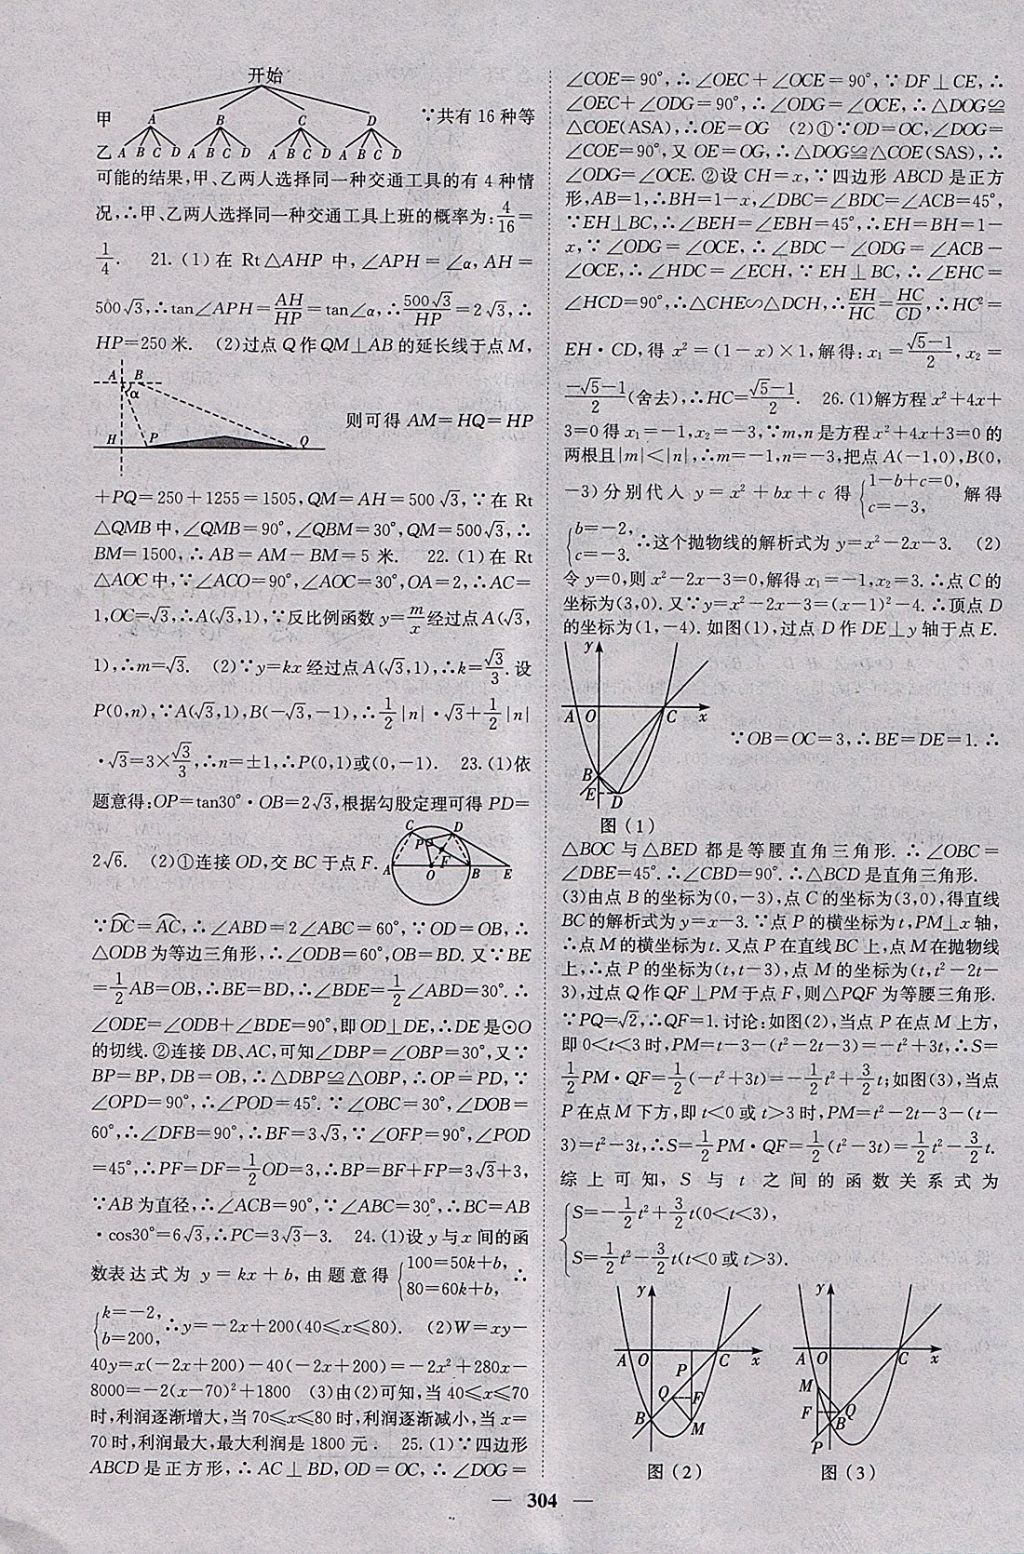 开始
甲 A B C D ∵共有 16 种等
乙 A B C D A B C D A B C D A B C D
可能的结果,甲、乙两人选择同一种交通工具的有 4 种情
况,∴甲、乙两人选择同一种交通工具上班的概率为:4/16=
1/4. 21. (1)在 Rt△AHP 中,∠APH=∠α,AH=
500√3,∴tan∠APH=AH/HP=tan∠α,∴500√3/HP=2√3,∴
HP=250 米. (2)过点 Q 作 QM⊥AB 的延长线于点 M,
A B
α
则可得 AM=HQ=HP
H P Q
+PQ=250+1255=1505,QM=AH=500√3,∵在 Rt
△QMB 中,∠QMB=90°,∠QBM=30°,QM=500√3,∴
BM=1500,∴AB=AM-BM=5 米. 22. (1)在 Rt
△AOC 中,∵∠ACO=90°,∠AOC=30°,OA=2,∴AC=
1,OC=√3,∴A(√3,1),∵反比例函数 y=m/x 经过点 A(√3,
1),∴m=√3. (2)∵y=kx 经过点 A(√3,1),∴k=√3/3.设
P(0,n),∵A(√3,1),B(-√3,-1),∴1/2|n|·√3+1/2|n|
·√3=3×√3/3,∴n=±1,∴P(0,1)或(0,-1). 23.(1)依
题意得:OP=tan30°·OB=2√3,根据勾股定理可得 PD=
2√6. (2)①连接 OD,交 BC 于点 F.
C D P F A O B E
∵DC=AC,∴∠ABD=2∠ABC=60°,∵OD=OB,∴
△ODB 为等边三角形,∴∠ODB=60°,OB=BD. 又∵BE
=1/2AB=OB,∴BE=BD,∴∠BDE=1/2∠ABD=30°.∴
∠ODE=∠ODB+∠BDE=90°,即 OD⊥DE,∴DE 是⊙O
的切线.②连接 DB、AC,可知∠DBP=∠OBP=30°,又∵
BP=BP,DB=OB,∴△DBP≌△OBP,∴OP=PD,∵
∠OPD=90°,∴∠POD=45°. ∵∠OBC=30°,∠DOB=
60°,∴∠DFB=90°,∴BF=3√3,∵∠OFP=90°,∠POD
=45°,∴PF=DF=1/2OD=3,∴BP=BF+FP=3√3+3,
∵AB 为直径,∴∠ACB=90°,∵∠ABC=30°,∴BC=AB
·cos30°=6√3,∴PC=3√3-3. 24.(1)设 y 与 x 间的函
数表达式为 y=kx+b,由题意得{100=50k+b, 80=60k+b, ∴
{k=-2, b=200, ∴y=-2x+200(40≤x≤80). (2)W=xy-
40y=x(-2x+200)-40(-2x+200)=-2x²+280x-
8000=-2(x-70)²+1800 (3)由(2)可知,当 40≤x≤70
时,利润逐渐增大,当 70≤x≤80 时,利润逐渐减小,当 x=
70 时,利润最大,最大利润是 1800 元. 25. (1)∵四边形
ABCD 是正方形,∴AC⊥BD,OD=OC,∴∠DOG=
∠COE=90°,∴∠OEC+∠OCE=90°,∵DF⊥CE,∴
∠OEC+∠ODG=90°,∴∠ODG=∠OCE,∴△DOG≌
△COE(ASA),∴OE=OG (2)①∵OD=OC,∠DOG=
∠COE=90°,又 OE=OG,∴△DOG≌△COE(SAS),∴
∠ODG=∠OCE.②设 CH=x,∵四边形 ABCD 是正方
形,AB=1,∴BH=1-x,∠DBC=∠BDC=∠ACB=45°,
∵EH⊥BC,∴∠BEH=∠EBH=45°,∴EH=BH=1-
x,∵∠ODG=∠OCE,∴∠BDC-∠ODG=∠ACB-
∠OCE,∴∠HDC=∠ECH,∵EH⊥BC,∴∠EHC=
∠HCD=90°,∴△CHE∽△DCH,∴EH/HC=HC/CD,∴HC²=
EH·CD,得 x²=(1-x)×1,解得:x₁=(√5-1)/2,x₂=
(-√5-1)/2(舍去),∴HC=(√5-1)/2. 26.(1)解方程 x²+4x+
3=0 得 x₁=-1,x₂=-3,∵m,n 是方程 x²+4x+3=0 的
两根且|m|<|n|,∴m=-1,n=-3,把点 A(-1,0),B(0,
-3)分别代入 y=x²+bx+c 得{1-b+c=0, c=-3, 解得
{b=-2, c=-3. ∴这个抛物线的解析式为 y=x²-2x-3. (2)
令 y=0,则 x²-2x-3=0,解得 x₁=-1,x₂=3.∴点 C 的
坐标为(3,0).又∵y=x²-2x-3=(x-1)²-4.∴顶点 D
的坐标为(1,-4).如图(1),过点 D 作 DE⊥y 轴于点 E.
y
A O C x
∵OB=OC=3,∴BE=DE=1.∴
B
E D
图(1)
△BOC 与△BED 都是等腰直角三角形.∴∠OBC=
∠DBE=45°.∴∠CBD=90°.∴△BCD 是直角三角形.
(3)由点 B 的坐标为(0,-3),点 C 的坐标为(3,0),得直线
BC 的解析式为 y=x-3.∵点 P 的横坐标为 t,PM⊥x 轴,
∴点 M 的横坐标为 t.又点 P 在直线 BC 上,点 M 在抛物线
上,∴点 P 的坐标为(t,t-3),点 M 的坐标为(t,t²-2t-
3),过点 Q 作 QF⊥PM 于点 F,则△PQF 为等腰三角形.
∵PQ=√2,∴QF=1.讨论:如图(2),当点 P 在点 M 上方,
即 0<t<3 时,PM=t-3-(t²-2t-3)=-t²+3t,∴S=
1/2PM·QF=1/2(-t²+3t)=-1/2t²+3/2t;如图(3),当点
P 在点 M 下方,即 t<0 或 t>3 时,PM=t²-2t-3-(t-
3)=t²-3t,∴S=1/2PM·QF=1/2(t²-3t)=1/2t²-3/2t.
综上可知,S 与 t 之间的函数关系式为
{S=-1/2t²+3/2t(0<t<3),
S=1/2t²-3/2t(t<0 或 t>3).
y y
A O C x A O C x
P Q F M B M F Q B P
图(2) 图(3)
— 304 —